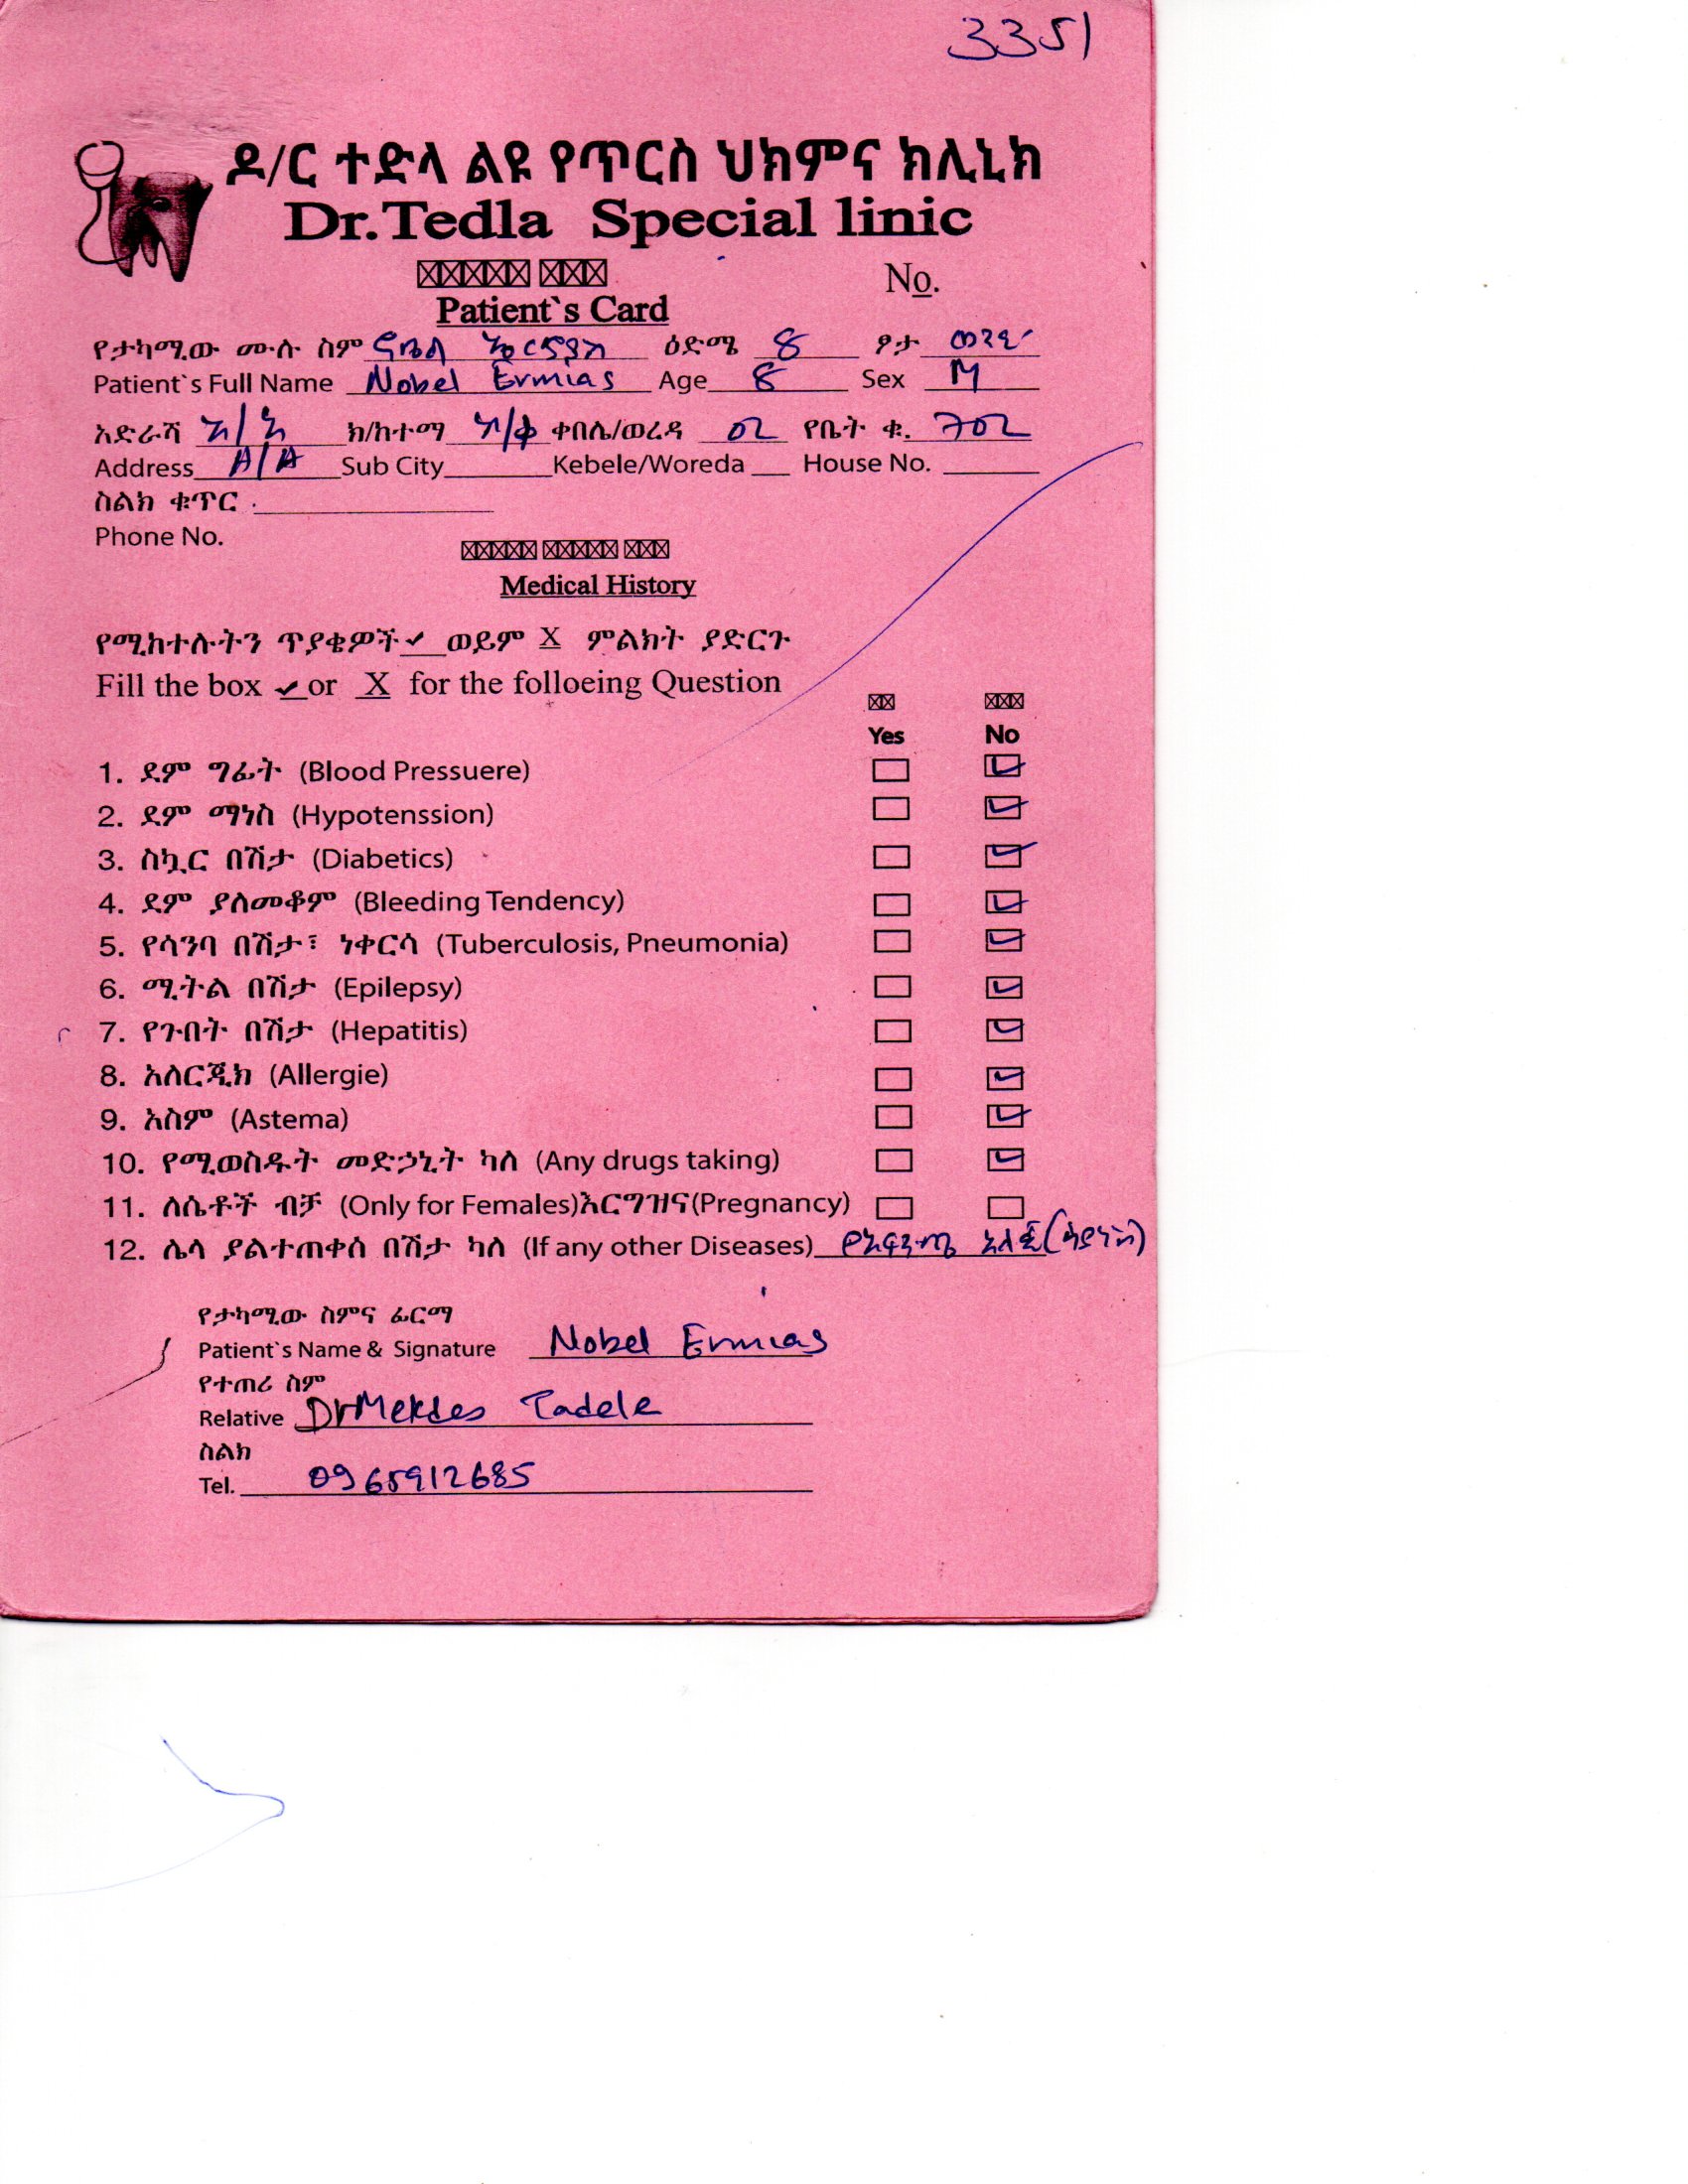 3351
ዶ/ር ተድላ ልዩ የጥርስ ህክምና ክሊኒክ
Dr.Tedla Special linic
No.
Patient`s Card
የታካሚው ሙሉ ስም ኖቤል ኤርሚያስ ዕድሜ 8 ፆታ ወንድ
Patient`s Full Name Nobel Ermias Age 8 Sex M
አድራሻ አ/አ ክ/ከተማ አ/ቃ ቀበሌ/ወረዳ 02 የቤት ቁ. 702
Address A/A Sub City Kebele/Woreda House No.
ስልክ ቁጥር
Phone No.
Medical History
የሚከተሉትን ጥያቄዎች ✓ ወይም X ምልክት ያድርጉ
Fill the box ✓ or X for the folloeing Question
Yes No
1. ደም ግፊት (Blood Pressuere)
2. ደም ማነስ (Hypotenssion)
3. ስኳር በሽታ (Diabetics)
4. ደም ያለመቆም (Bleeding Tendency)
5. የሳንባ በሽታ፣ ነቀርሳ (Tuberculosis, Pneumonia)
6. ሚትል በሽታ (Epilepsy)
7. የጉበት በሽታ (Hepatitis)
8. አለርጂክ (Allergie)
9. አስም (Astema)
10. የሚወስዱት መድኃኒት ካለ (Any drugs taking)
11. ለሴቶች ብቻ (Only for Females)እርግዝና(Pregnancy)
12. ሌላ ያልተጠቀሰ በሽታ ካለ (If any other Diseases)
የታካሚው ስምና ፊርማ
Patient`s Name & Signature Nobel Ermias
የተጠሪ ስም
Relative Dr Mekdes Tadele
ስልክ
Tel. 0965912685